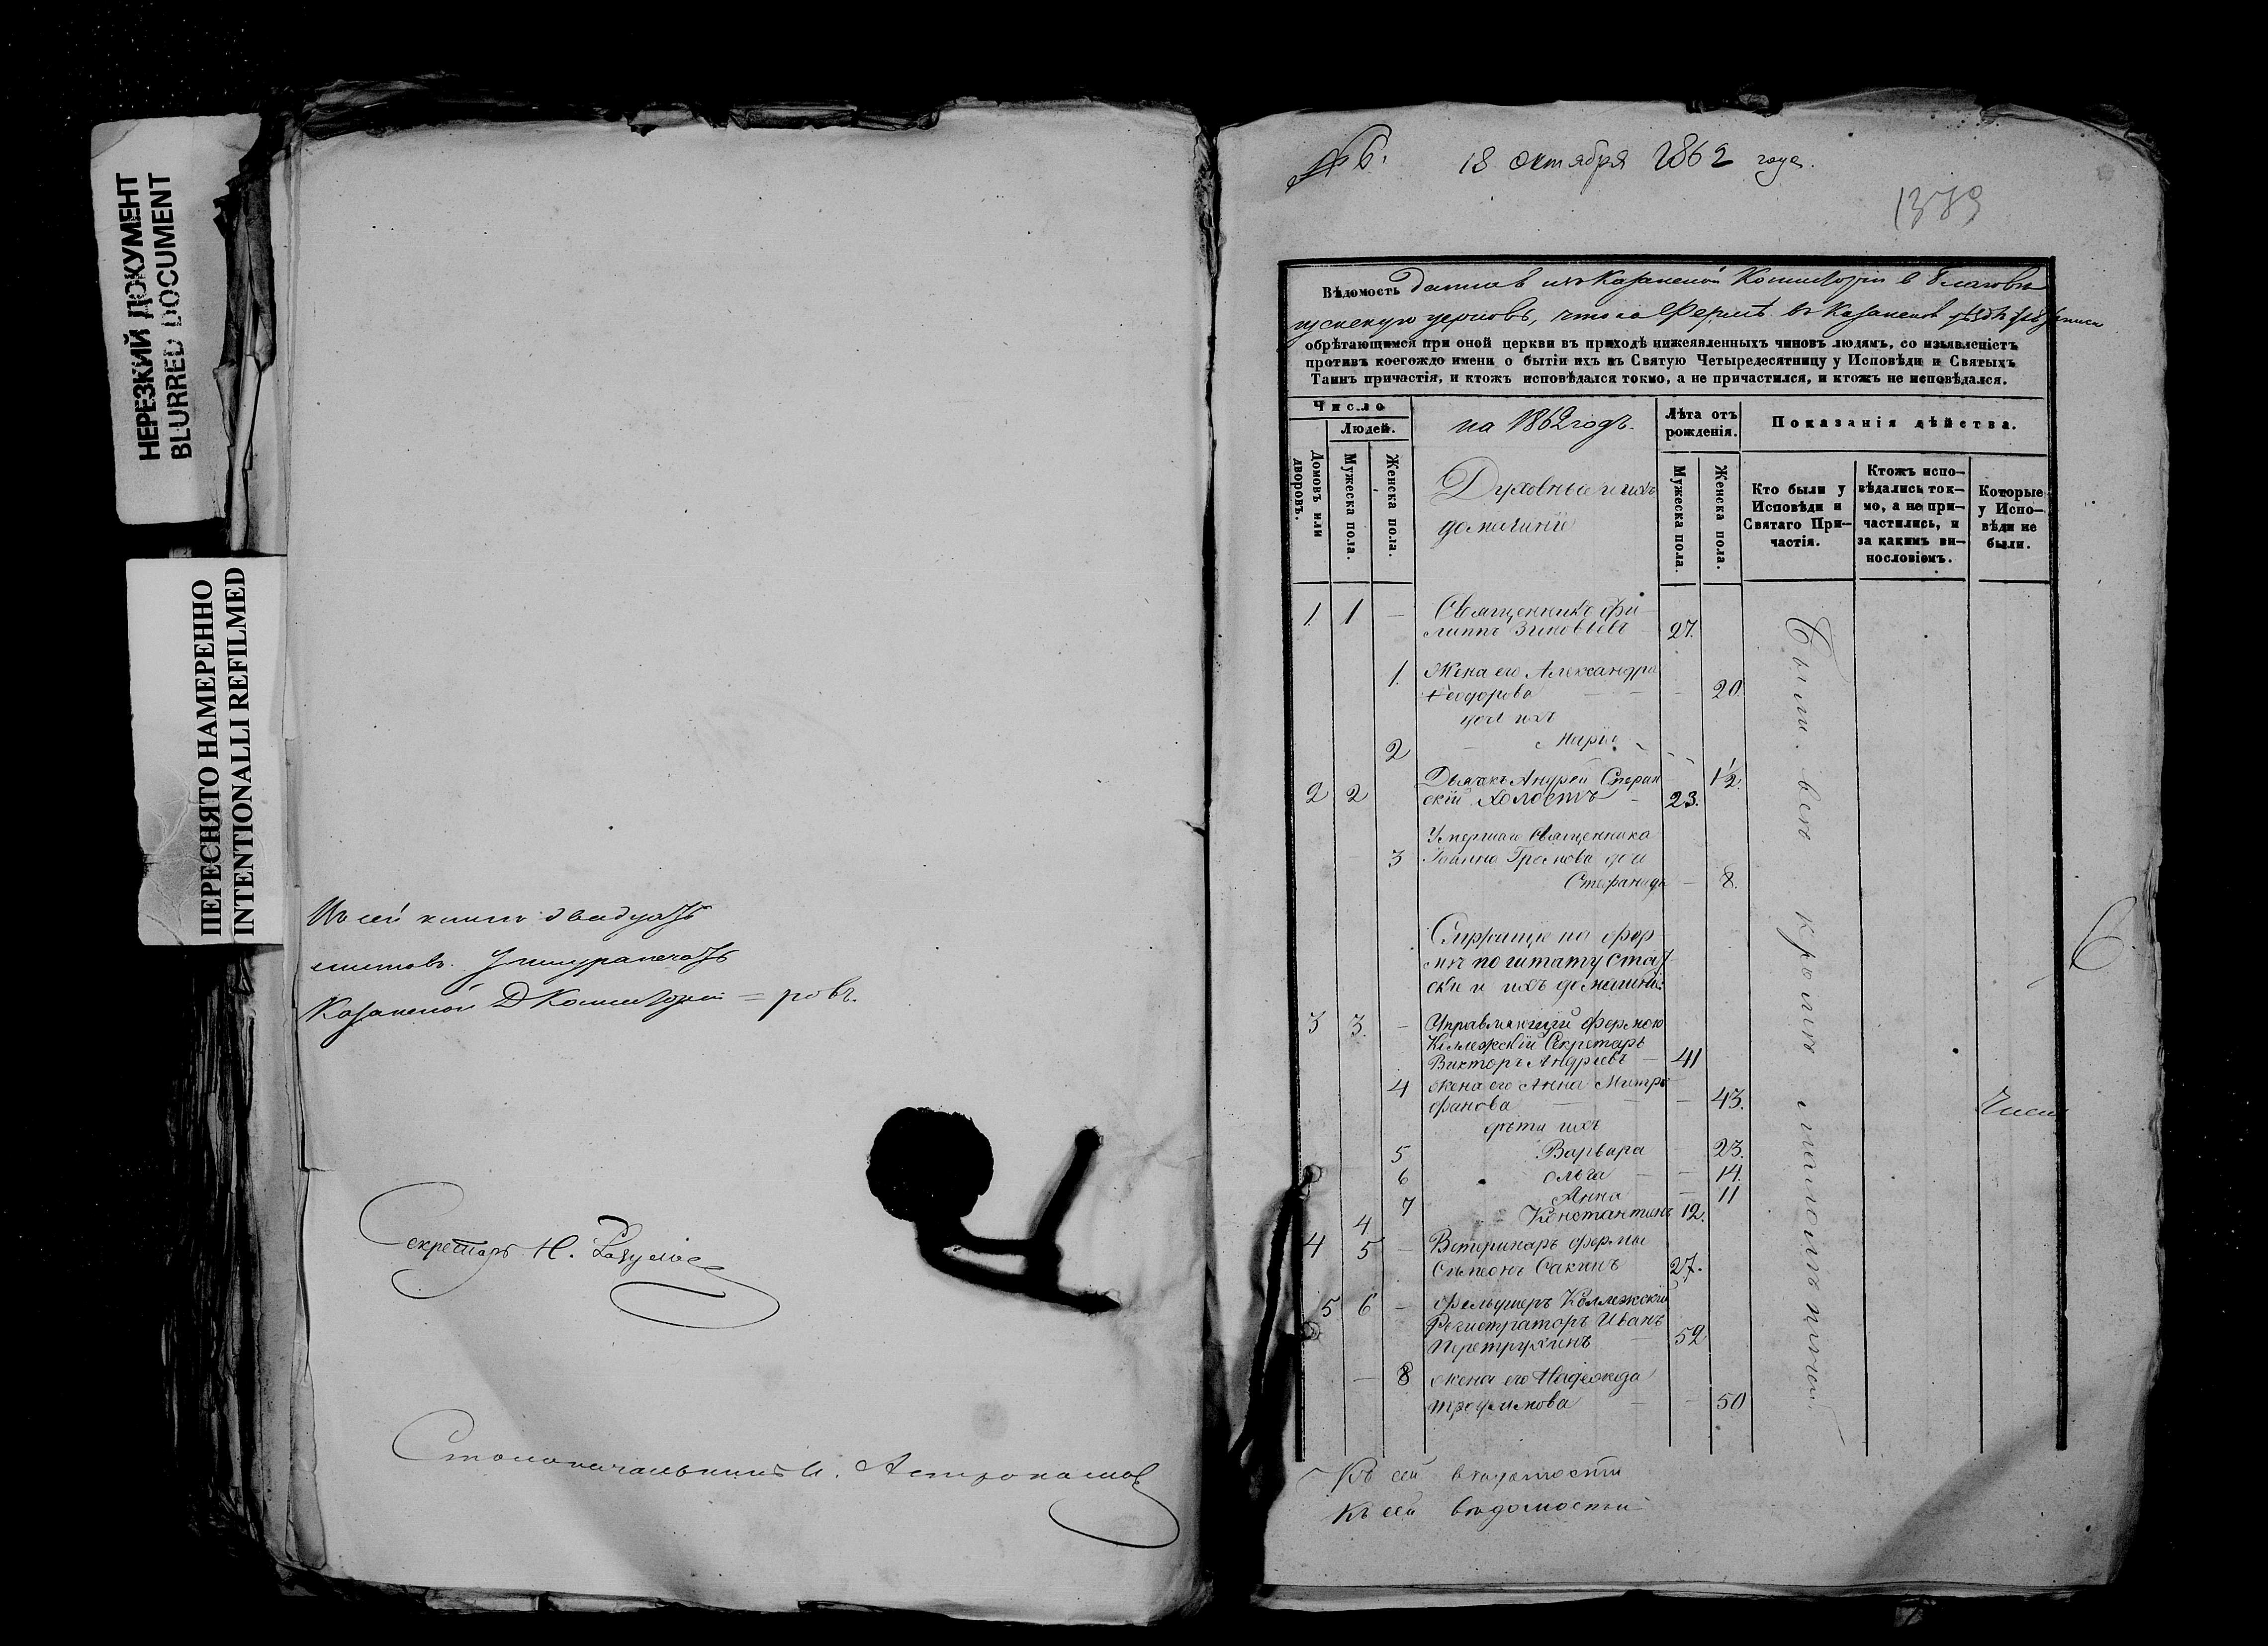 НЕРЕЗКИЙ ДОКУМЕНТ
BLURRED DOCUMENT
ПЕРЕСНЯТО НАМЕРЕННО
INTENTIONALLI REFILMED
Въ сей книгѣ двадцать
листовъ.
Казанской Д Консисторіи =
Секретарь Н.
Столоначальникъ
№ 6. 18 октября 1862 года.
1389
Вѣдомость данная изъ Казанской Консисторіи в Благовѣ
щенскую церковь, что на Фермѣ въ Казанскомъ уѣздѣ
обрѣтающимся при оной церкви въ приходѣ нижеявленныхъ чиновъ людямъ, со изъявленіетъ
противъ коегождо имени о бытіи ихъ въ Святую Четыредесятницу у Исповѣди и Святыхъ
Таинъ причастія, и ктожъ исповѣдался токмо, а не причастился, и ктожъ не исповѣдался.
Число
Людей.
Домовъ или дворовъ.
Мужеска пола.
Женска пола.
на 1862 годъ.
Духовные и ихъ
домашніе
Лѣта отъ рожденія.
Мужеска пола.
Женска пола.
Показанія дѣйства.
Кто были у Исповѣди и Святаго При-частія.
Ктожъ испо-вѣдались ток-мо, а не при-частились, и за какимъ ви-нословіемъ.
Которые у Испо-вѣди не были.
1. 1 — Священникъ Фи
липпъ Зиновьевъ — 27.
1. Жена его Александра
Феодорова — — — 20.
дочь ихъ
2 Марія
1½.
Дьячокъ Андрей Сперан
2 2 скій холостъ — 23.
Умершаго Священника
3 Іоанна Громова дочь
Стефанида — 8.
Служащіе на фер
мѣ по штату Стат
скіе и ихъ домашніе:
3 3. — Управляющій фермою
Коллежскій Секретарь
Викторъ Андреевъ — 41
4 жена его Анна Митро
фанова — — — 43.
дѣти ихъ
5 Варвара — 23.
6 Ольга — — 14.
7 Анна — 11
4 Константинъ 12.
4 5 — Ветеринаръ фермы
Симеонъ Сакинъ 27.
5 6 — Фельдшеръ Коллежскій
Регистраторъ Иванъ
Петрухинъ — 52
— 8 жена его Надежда
Трофимова — — 50
Были всѣ кромѣ
6.
Къ сей вѣдомости
Къ сей вѣдомости